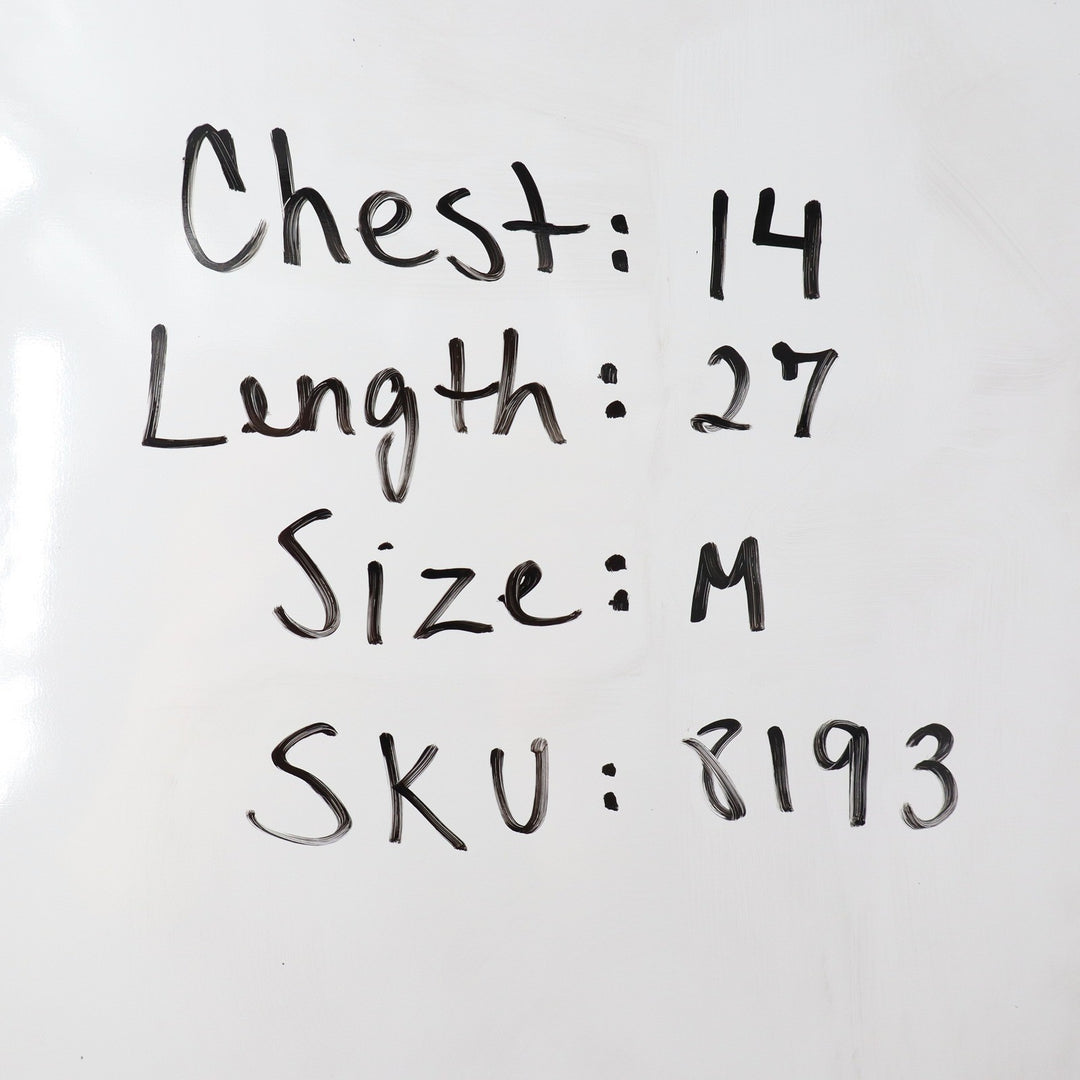 Chest: 14
Length: 27
Size: M
SKU: 8193